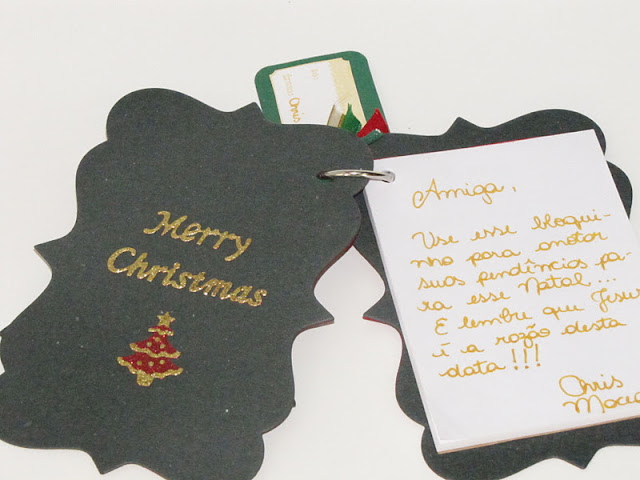 Merry
Christmas
Amiga,
Use esse bloqui-
nho para anotar
suas pendências pa-
ra esse Natal...
E lembre que Jesus
é a razão desta
data!!!
Chris